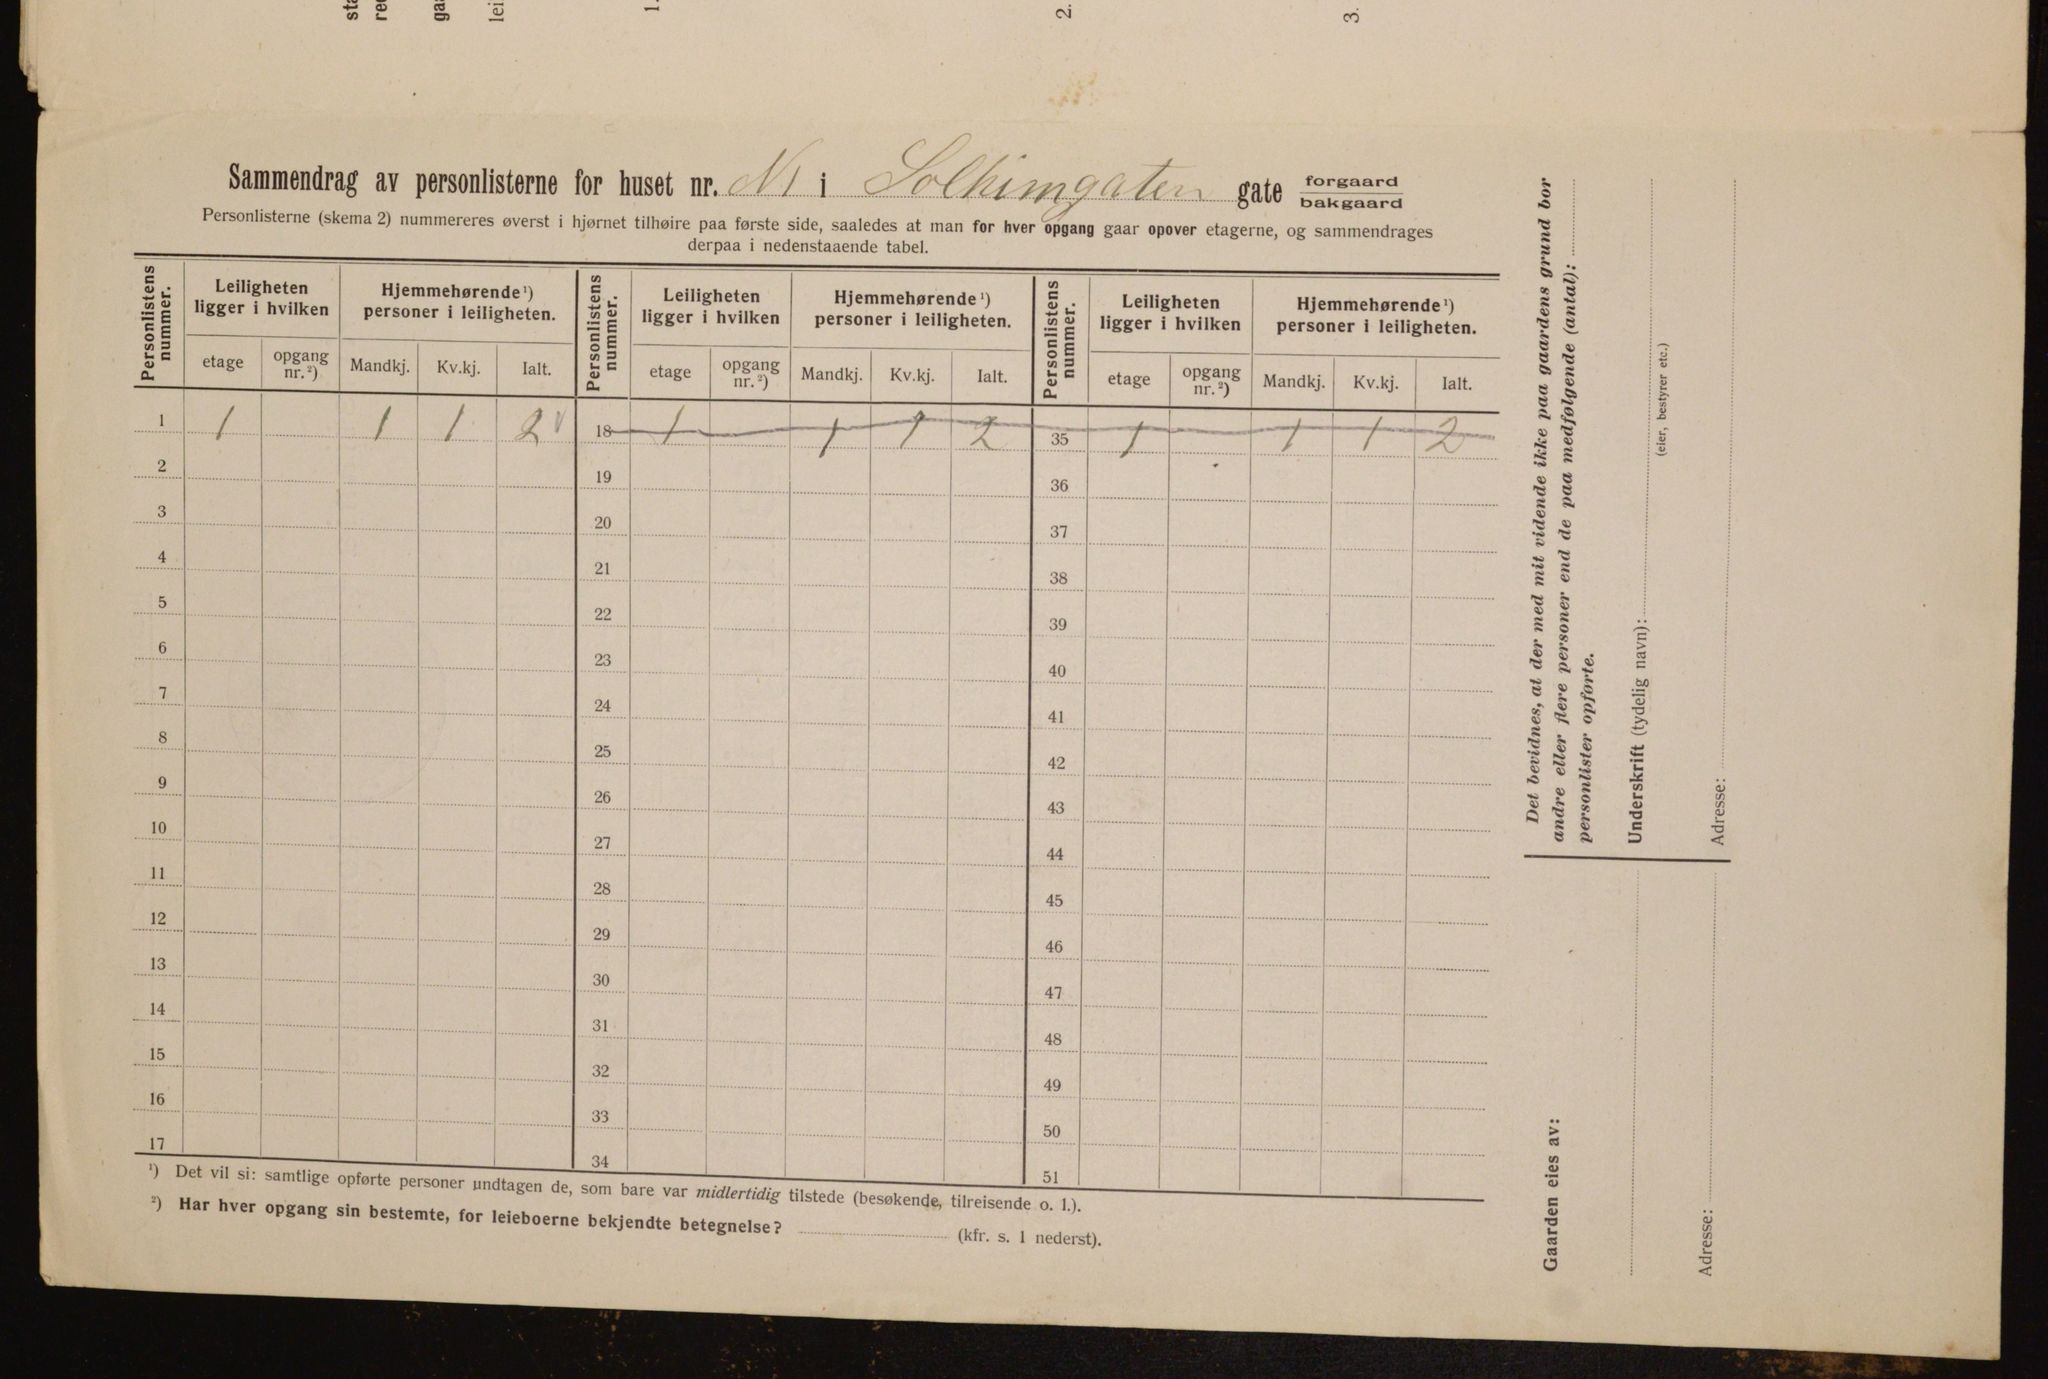 sta
red
gaa
lei
1.
2.
3.
Sammendrag av personlisterne for huset nr. N1 i Solheimgaten gate forgaard
bakgaard
Personlisterne (skema 2) nummereres øverst i hjørnet tilhøire paa første side, saaledes at man for hver opgang gaar opover etagerne, og sammendrages
derpaa i nedenstaaende tabel.
Personlistens nummer. Leiligheten ligger i hvilken Hjemmehørende¹) personer i leiligheten. Personlistens nummer. Leiligheten ligger i hvilken Hjemmehørende¹) personer i leiligheten. Personlistens nummer. Leiligheten ligger i hvilken Hjemmehørende¹) personer i leiligheten.
etage opgang nr.²) Mandkj. Kv.kj. Ialt. etage opgang nr.²) Mandkj. Kv.kj. Ialt. etage opgang nr.²) Mandkj. Kv.kj. Ialt.
1 1 1 1 2 18 1 1 1 2 35 1 1 1 2
2 19 36
3 20 37
4 21 38
5 22 39
6 23 40
7 24 41
8 25 42
9 26 43
10 27 44
11 28 45
12 29 46
13 30 47
14 31 48
15 32 49
16 33 50
17 34 51
¹) Det vil si: samtlige opførte personer undtagen de, som bare var midlertidig tilstede (besøkende, tilreisende o. l.).
²) Har hver opgang sin bestemte, for leieboerne bekjendte betegnelse? (kfr. s. 1 nederst).
Det bevidnes, at der med mit vidende ikke paa gaardens grund bor
andre eller flere personer end de paa medfølgende (antal):
personlister opførte.
Underskrift (tydelig navn):
(eier, bestyrer etc.)
Adresse:
Gaarden eies av:
Adresse: